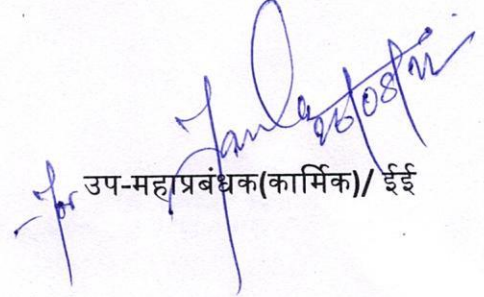 26/08/22
For उप-महाप्रबंधक(कार्मिक)/ ईई